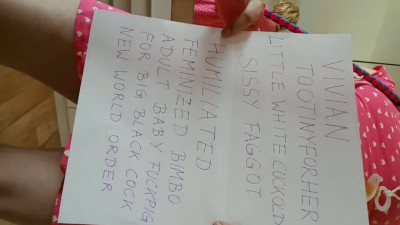 VIVIAN
TOOTINYFORHER
LITTLE WHITE CUCKOLD
SISSY FAGGOT
HUMILIATED
FEMINIZED BIMBO
ADULT BABY FUCKPIG
FOR BIG BLACK COCK
NEW WORLD ORDER